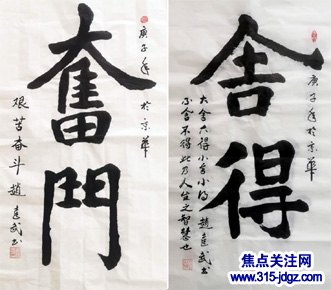 庚子年於京華
奮鬥
艰苦奋斗 趙武书
庚子年於京華
舍得
大舍大得小舍小得
不舍不得此乃人生之智慧也
趙武书
焦点关注网
www.315-jdgz.com